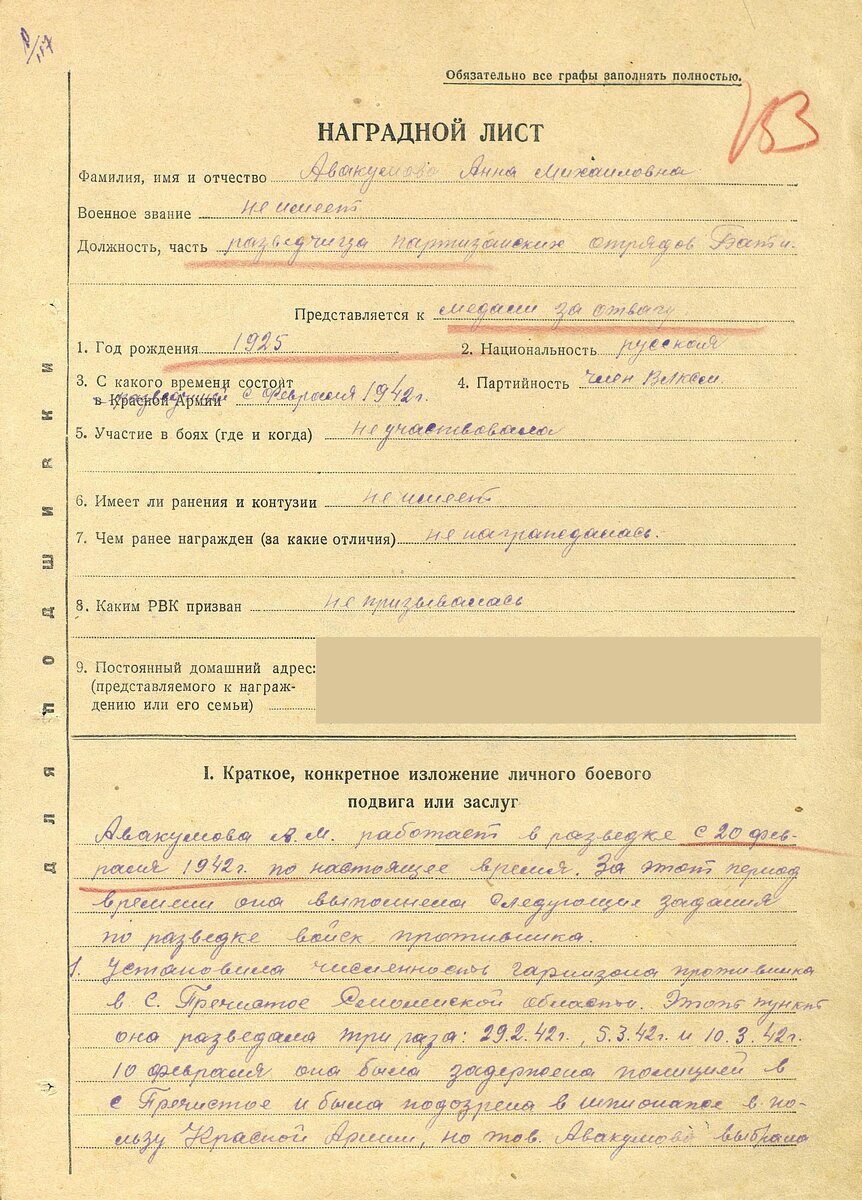 Обязательно все графы заполнять полностью.
153
НАГРАДНОЙ ЛИСТ
Фамилия, имя и отчество Авакумова Анна Михаиловна
Военное звание не имеет
Должность, часть разведчица партизанских отрядов Бати.
Представляется к медали за отвагу
1. Год рождения 1925
2. Национальность русская
3. С какого времени состоит
в Красной Армии разведчицей с февраля 1942г.
4. Партийность член ВЛКСМ.
5. Участие в боях (где и когда) не участвовала
6. Имеет ли ранения и контузии не имеет
7. Чем ранее награжден (за какие отличия) не награждалась.
8. Каким РВК призван не призывалась
9. Постоянный домашний адрес:
(представляемого к награж-
дению или его семьи)
ДЛЯ ПОДШИВКИ
I. Краткое, конкретное изложение личного боевого
подвига или заслуг
Авакумова А.М. работает в разведке с 20 фев-
раля 1942г. по настоящее время. За этот период
времени она выполнила следующие задания
по разведке войск противника.
1. Установила численность гарнизона противника
в с. Пречистое Смоленской области. Этот пункт
она разведала три раза: 29.2.42г., 5.3.42г. и 10.3.42г.
10 февраля она была задержена полицией в
с Пречистое и была подозрена в шпионаже в по-
льзу Красной Армии, но тов. Авакумова выбрала